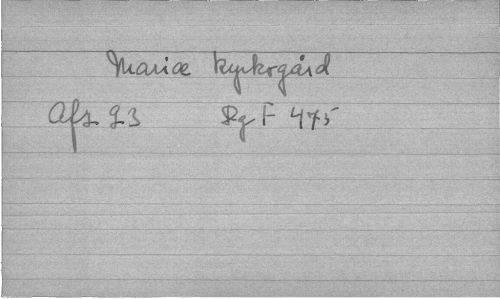 Mariæ kyrkogård
Afs. 93 Rg F 475